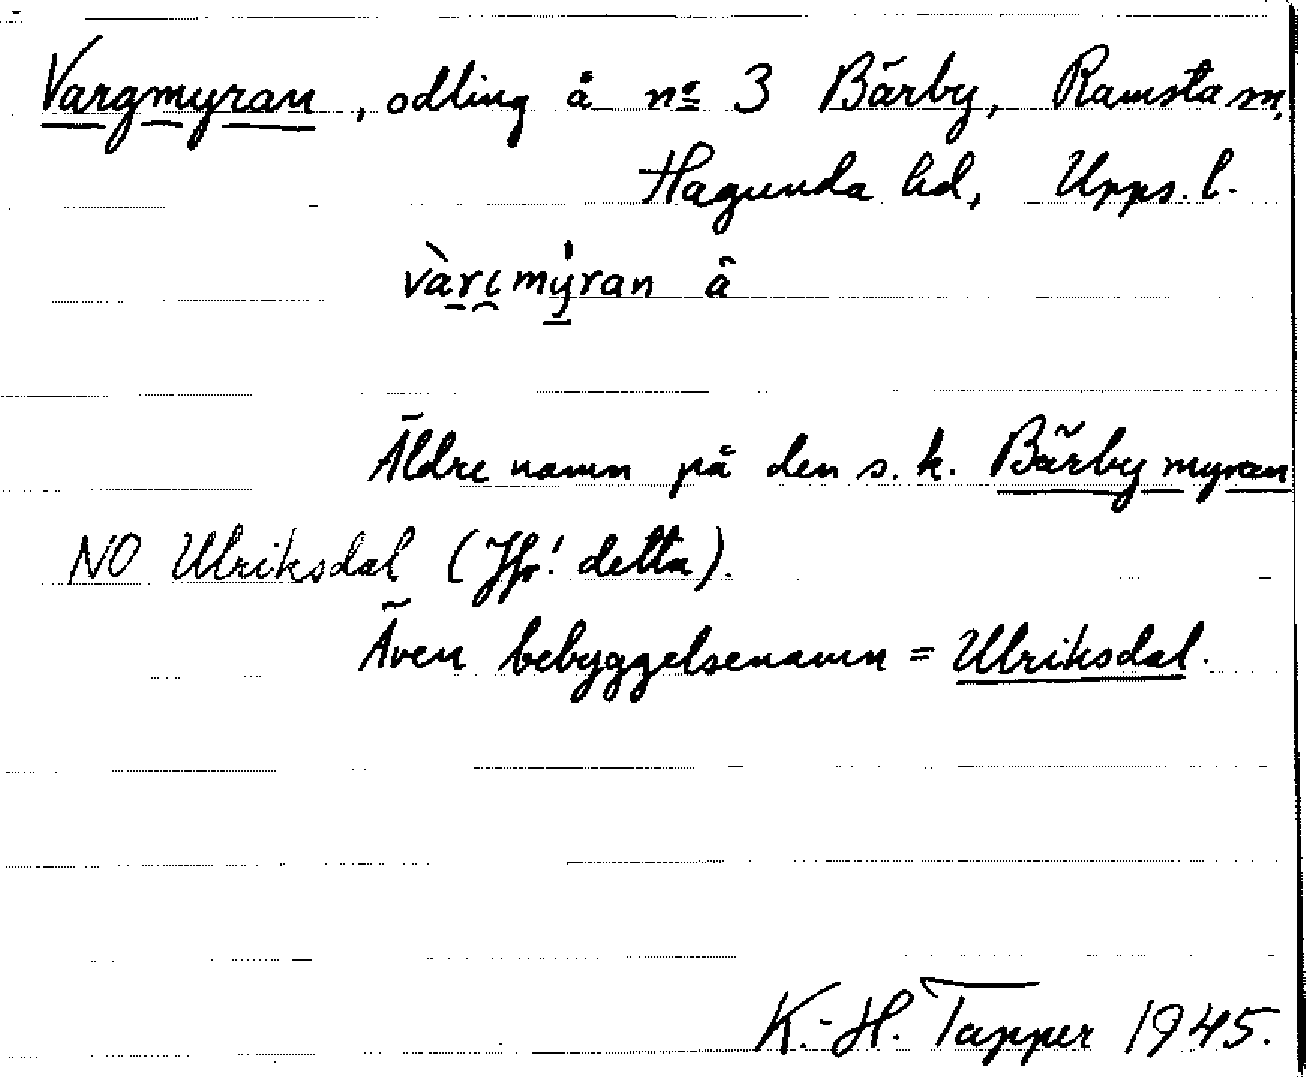 Vargmyran, odling å nº 3 Bärby, Ramsta sn,
Hagunda hd, Upps. l.
vàrɩmy̍ran å
Äldre namn på den s.k. Bärbymyran
NO Ulriksdal (Jfr! detta).
Även bebyggelsenamn = Ulriksdal.
K.-H. Tapper 1945.